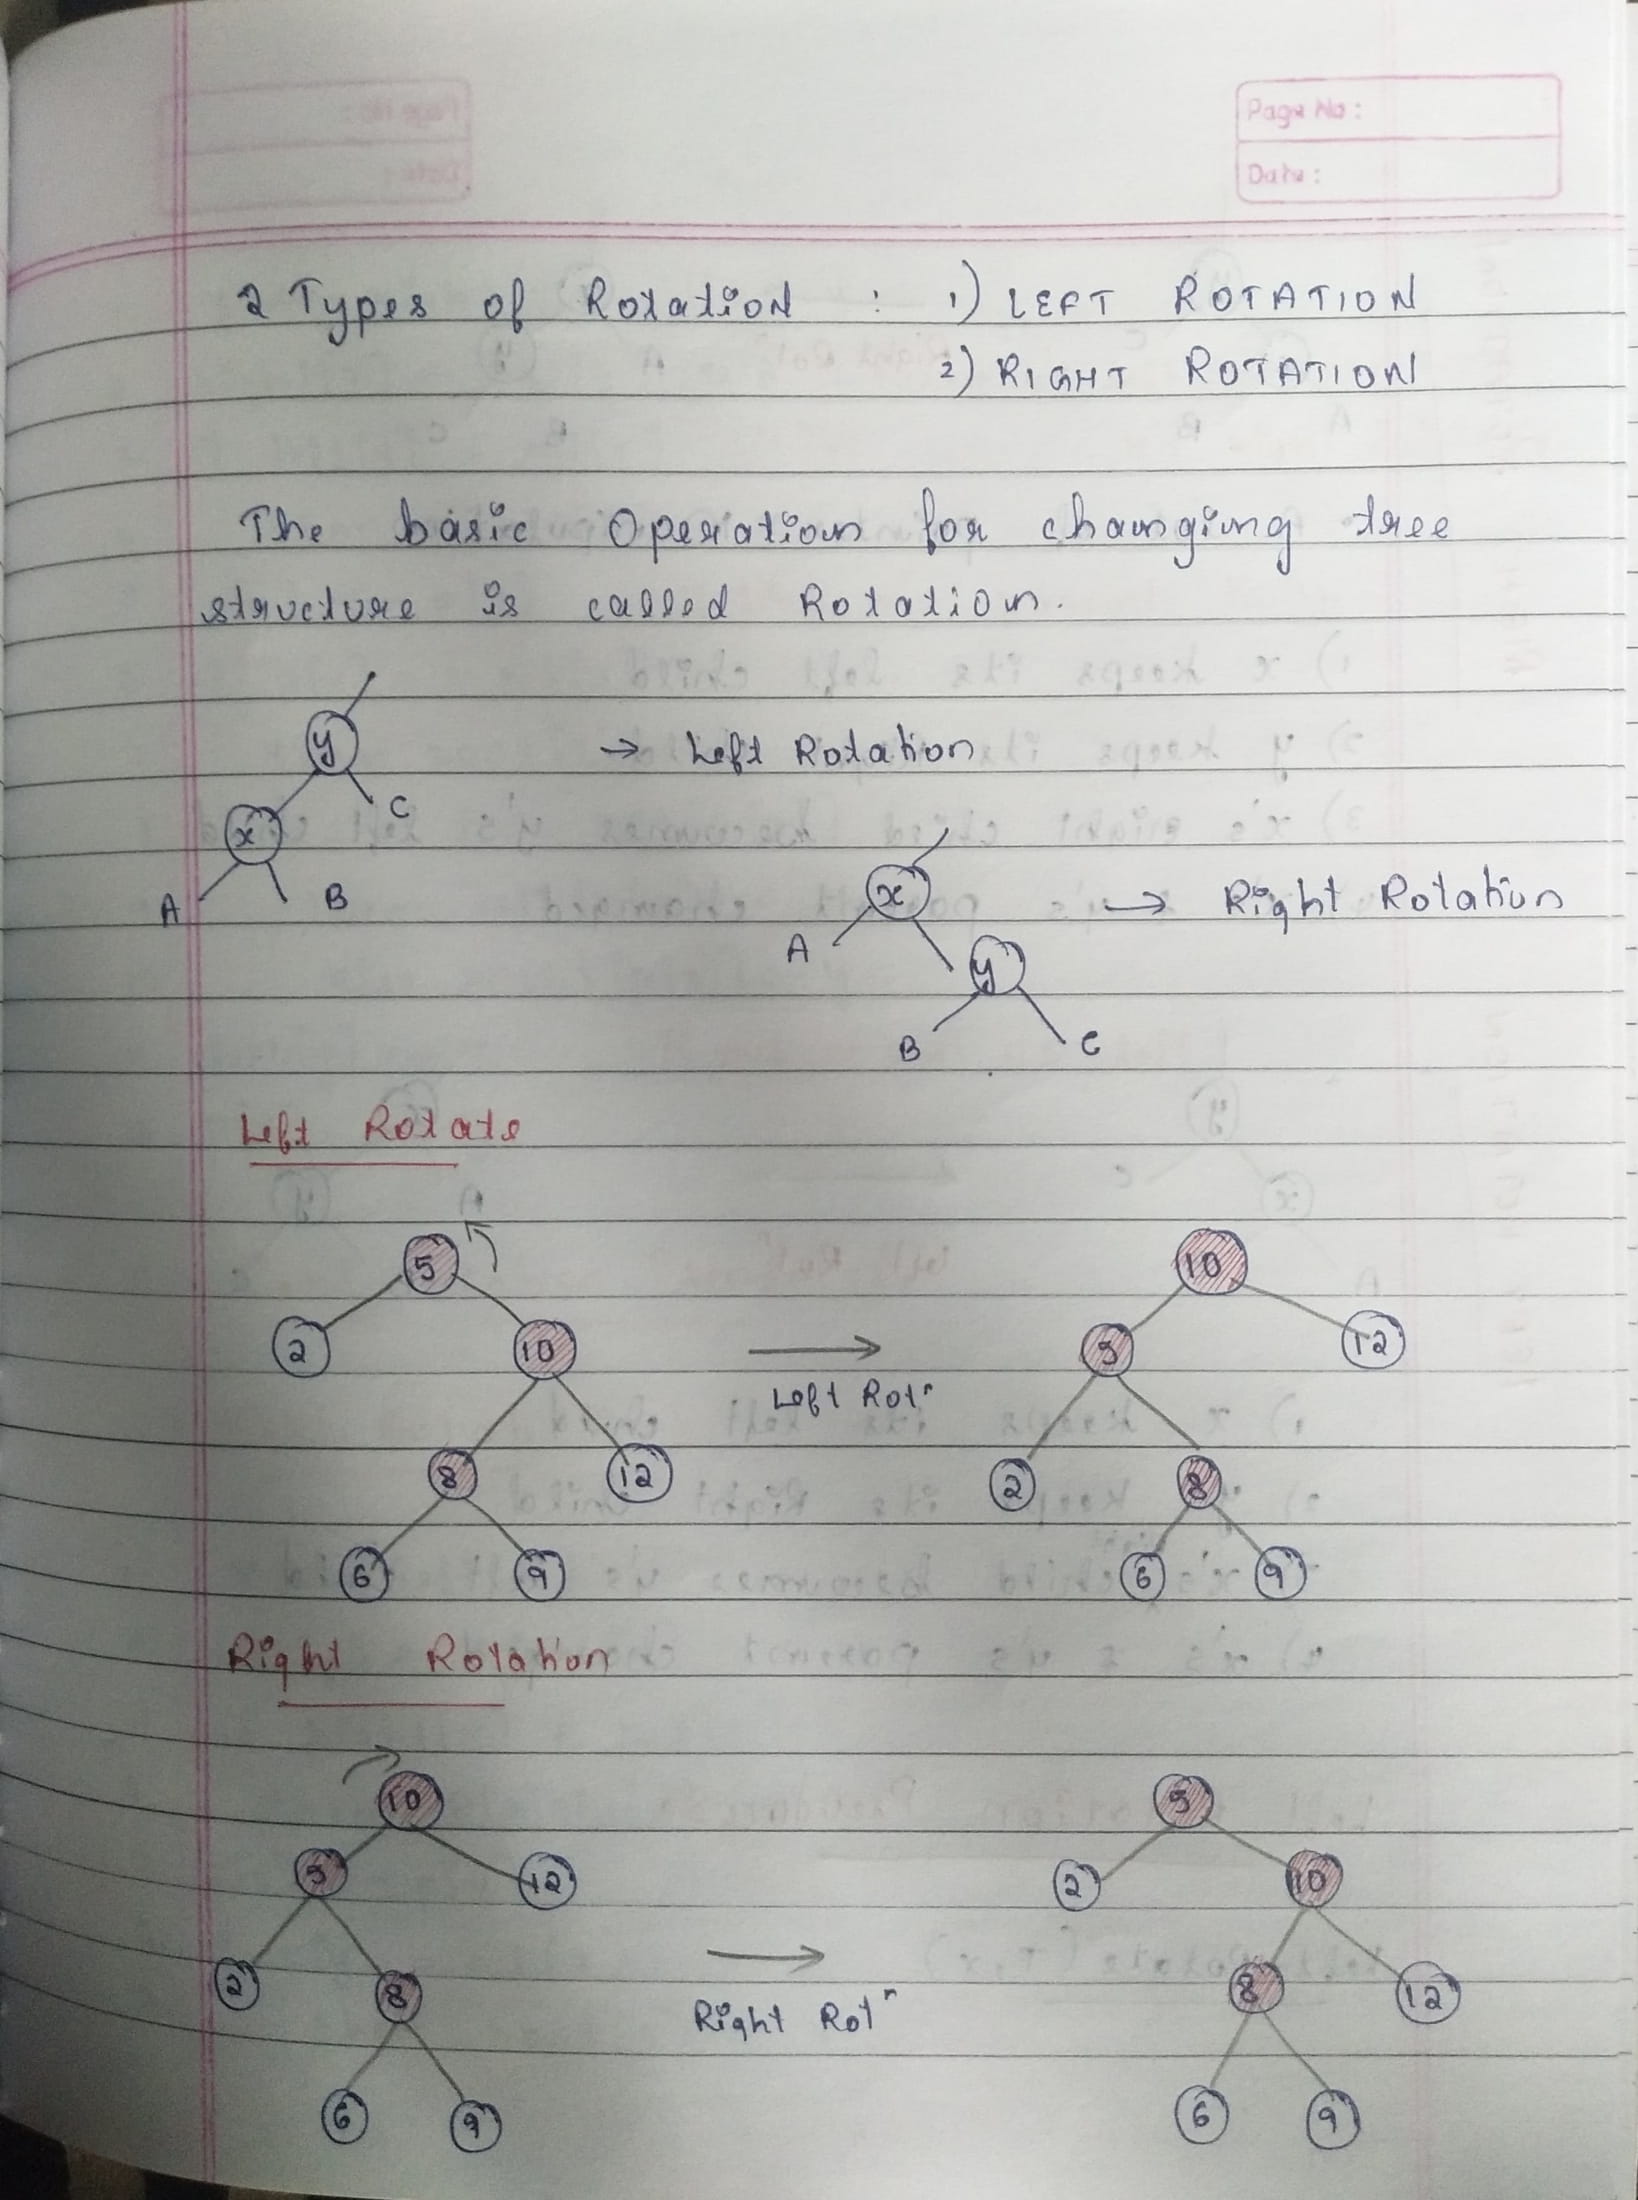 Page No :
Date :
2 Types of Rotation : 1) LEFT ROTATION
2) RIGHT ROTATION
The basic Operation for changing tree
structure is called Rotation.
y
→ Left Rotation
C
x
A B
x
→ Right Rotation
A
y
B C
Left Rotate
5 10
2 10 → 5 12
Left Rotⁿ
8 12 2 8
6 9 6 9
Right Rotation
10 5
5 12 2 10
2 8 → 8 12
Right Rotⁿ
6 9 6 9